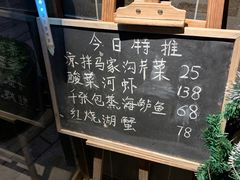 今日特推
凉拌马家沟芹菜 25
酸菜河虾 138
千张包蒸海鲈鱼 68
红烧湖蟹 78